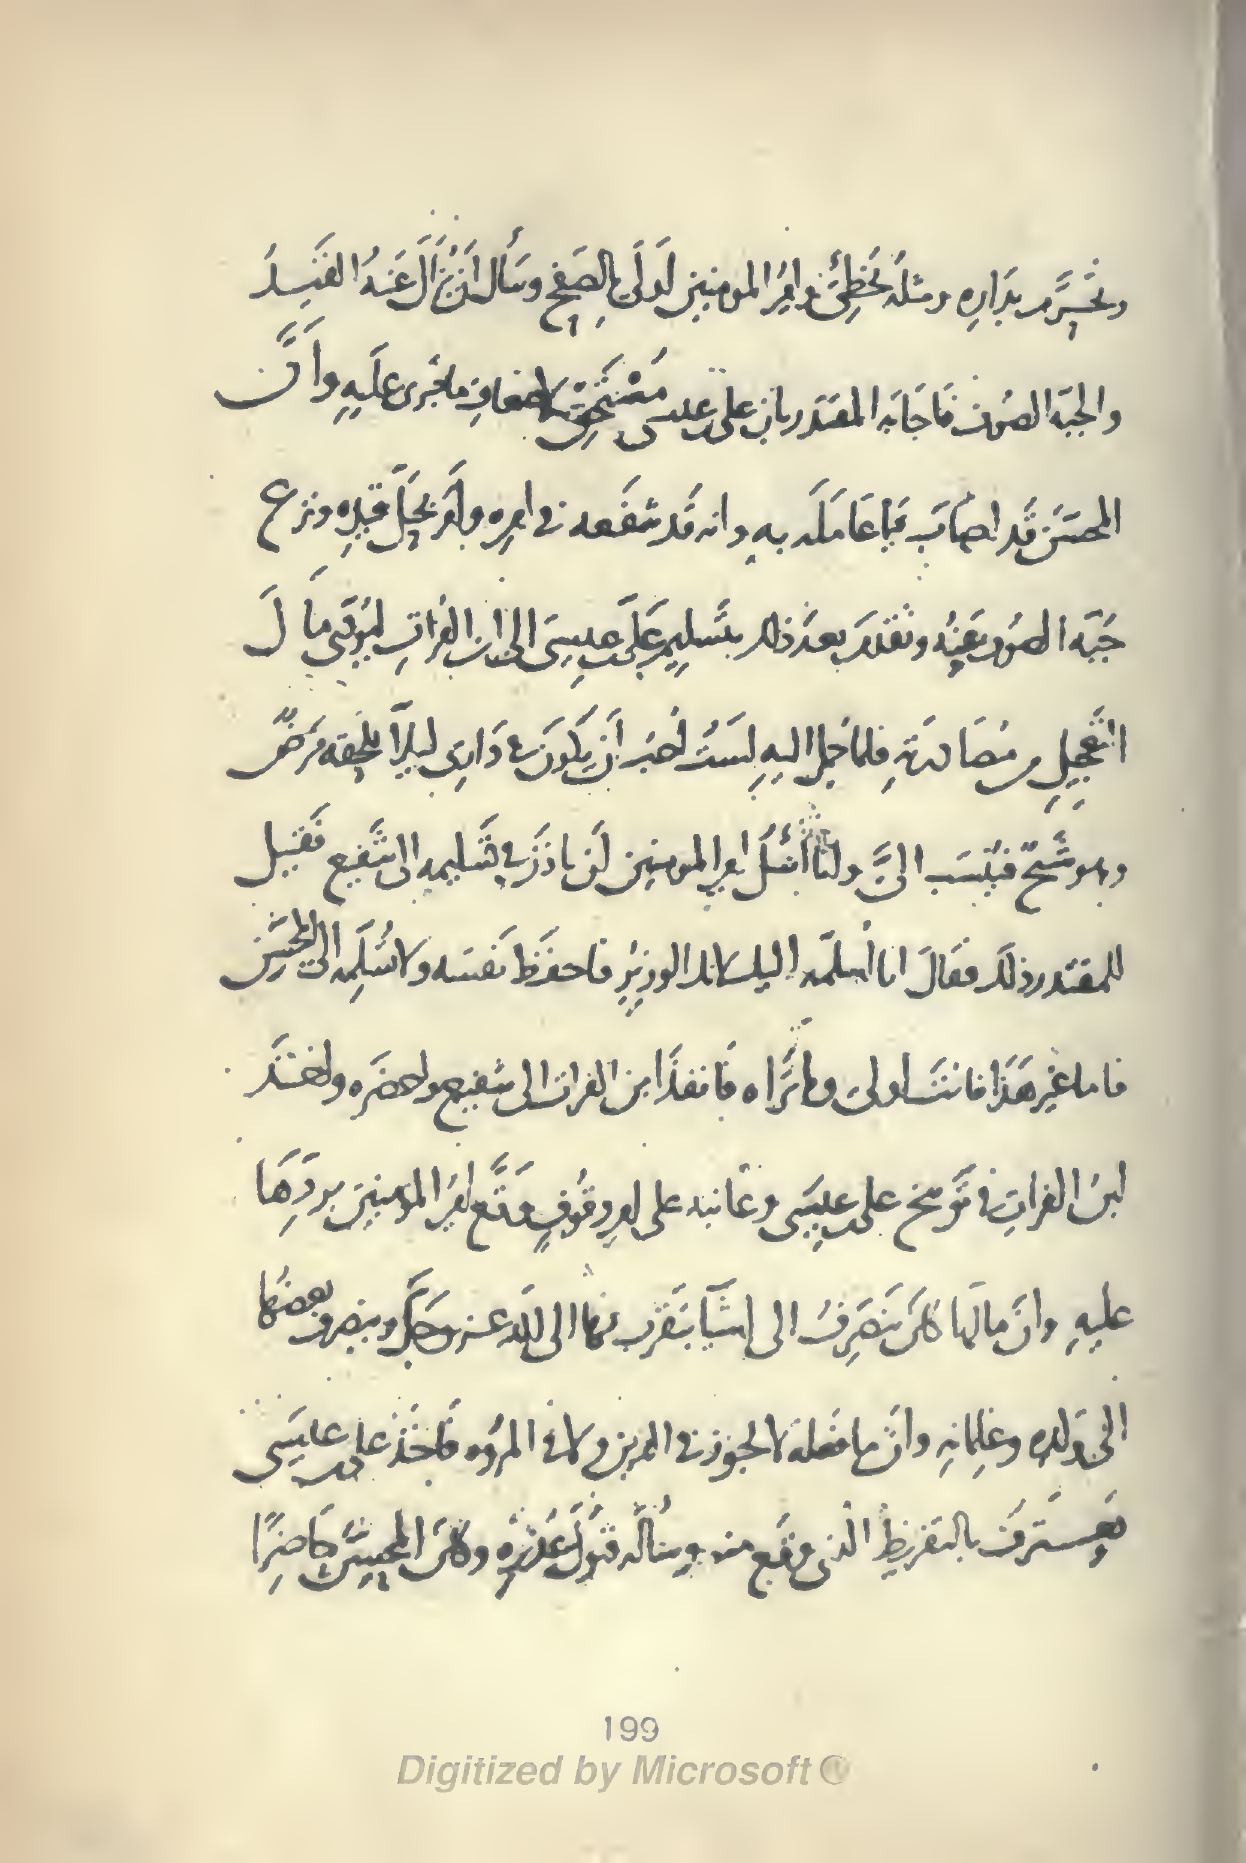 وتحرم بداره ومثله يخطئ وامير المومنين اولى بالصفح وسأل ان يزال عنه القيد
والجبه الصوف فاجابه المقتدر بان على بن عيسى مستحق لاضعاف ما جرى عليه وان
المحسن قد اصاب فيما عامله به وانه قد شفعه في امره وامر بحل قيده ونزع
جبه الصوف عنه وتقدم بعد ذلك بتسليم على بن عيسى الى ابن الفرات ليودى مال
التعجيل من مصادرته فلما حمل اليه لست احب ان يكون في دارى ليلا يلحقه مرض
وهو شيخ فينسب الى وانا اسل امير المومنين ان ياذن في تسليمه الى شفيع فقيل
للمقتدر ذلك فقال انا اسلمه اليك لانك الوزير فاحفظ نفسه ولا تسلمه الى المحسن
فاما غير هذا فانت اولى وما تراه فانفذ ابن الفرات الى شفيع واحضره واخذ
ابن الفرات في توبيخ على بن عيسى وعاتبه على امر وقوف وقع امير المومنين بردها
عليه وان مالها كان ينصرف الى اشيا يتقرب بها الى الله عز وجل وينصرف بعضها
الى ولده وغلمانه وان ما فعله لا يجوز في الدين ولا في المروه فاخذ على بن عيسى
يعترف بالتفريط الذى وقع منه ويساله قبول عذره وكان المحسن حاضرا
199
Digitized by Microsoft ®